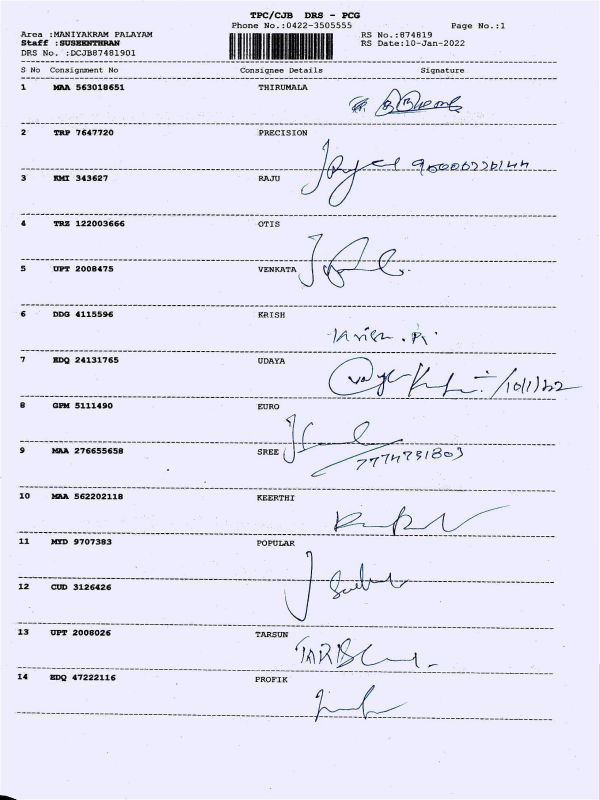 TPC/CJB DRS - PCG
Phone No.:0422-3505555 Page No.:1
Area :MANIYAKRAM PALAYAM RS No.:874819
Staff :SUSEENTHRAN RS Date:10-Jan-2022
DRS No. :DCJB87481901
S No Consignment No Consignee Details Signature
1 MAA 563018651 THIRUMALA
2 TRP 7647720 PRECISION
3 KMI 343627 RAJU
4 TRZ 122003666 OTIS
5 UPT 2008475 VENKATA
6 DDG 4115596 KRISH
7 EDQ 24131765 UDAYA
10/1/22
8 GPM 5111490 EURO
9 MAA 276655658 SREE
10 MAA 562202118 KEERTHI
11 MYD 9707383 POPULAR
12 CUD 3126426
13 UPT 2008026 TARSUN
14 EDQ 47222116 PROFIK